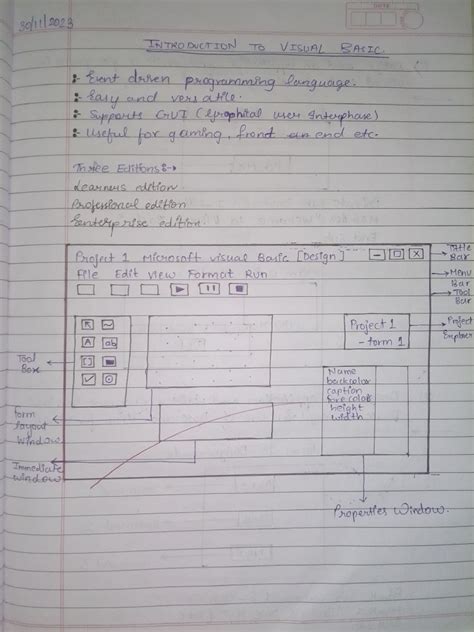 30/11/2023
INTRODUCTION TO VISUAL BASIC.
:- Event driven programming language.
:- Easy and versatile.
:- Supports GUI (Graphital user Interphase)
:- Useful for gaming, front an end etc.
Three Editions:→
Learners edition
Professional edition
Enterprise edition.
Project 1 Microsoft visual Basic [Design]
Title Bar
File Edit View Format Run
Menu Bar
Tool Bar
A
ab
Project 1
- form 1
Project Explorer
Tool Box
Name
backcolor
caption
forecolor
height
width
form layout window
Immediate window
Properties Window.